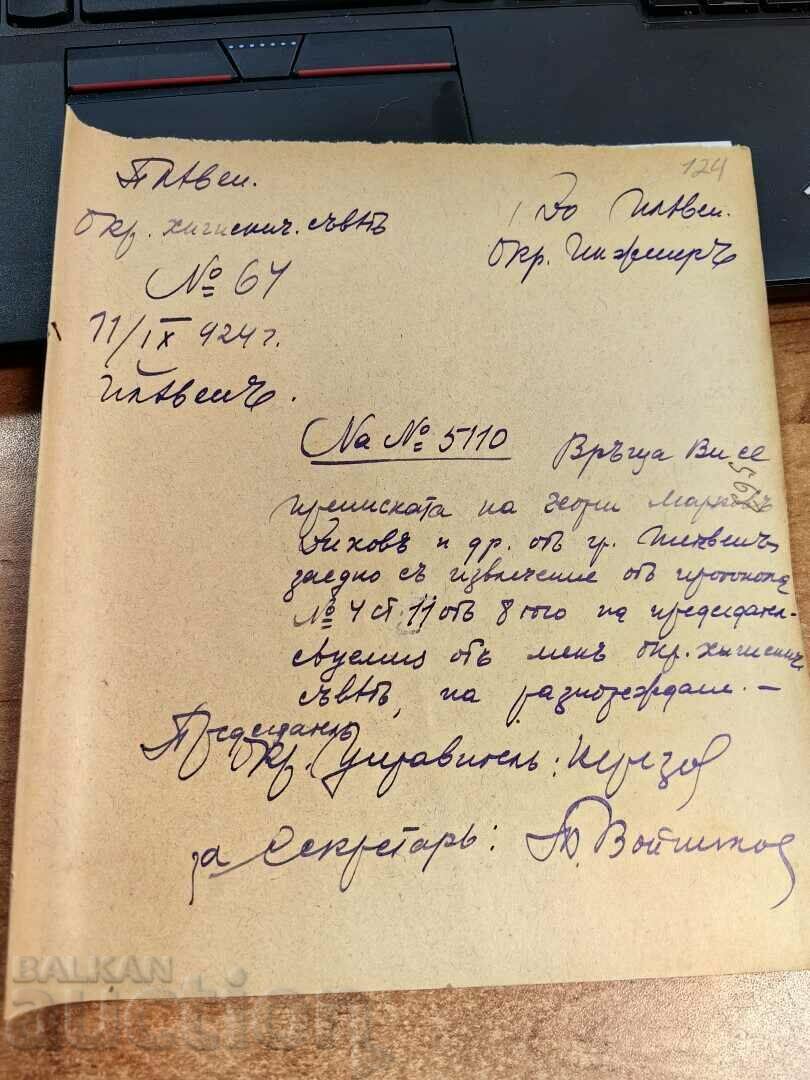 124
Плѣвен.
Окр. хигиенич. съвѣтъ
№ 64
11/IX 924 г.
Плѣвенъ.
До Плѣвен.
Окр. Инженеръ
На № 5110 Връща Ви се
преписката на Марковъ
Диховъ и др. отъ гр. Плѣвенъ,
заедно съ извлечение отъ протокола
№ 4 ст. 11 отъ 8 того на председател-
ствуемия отъ менъ окр. хигиенич.
съвѣтъ, на разпореждане. —
Председатель
Окр. Управитель:
за Секретарь:
BALKAN
auction